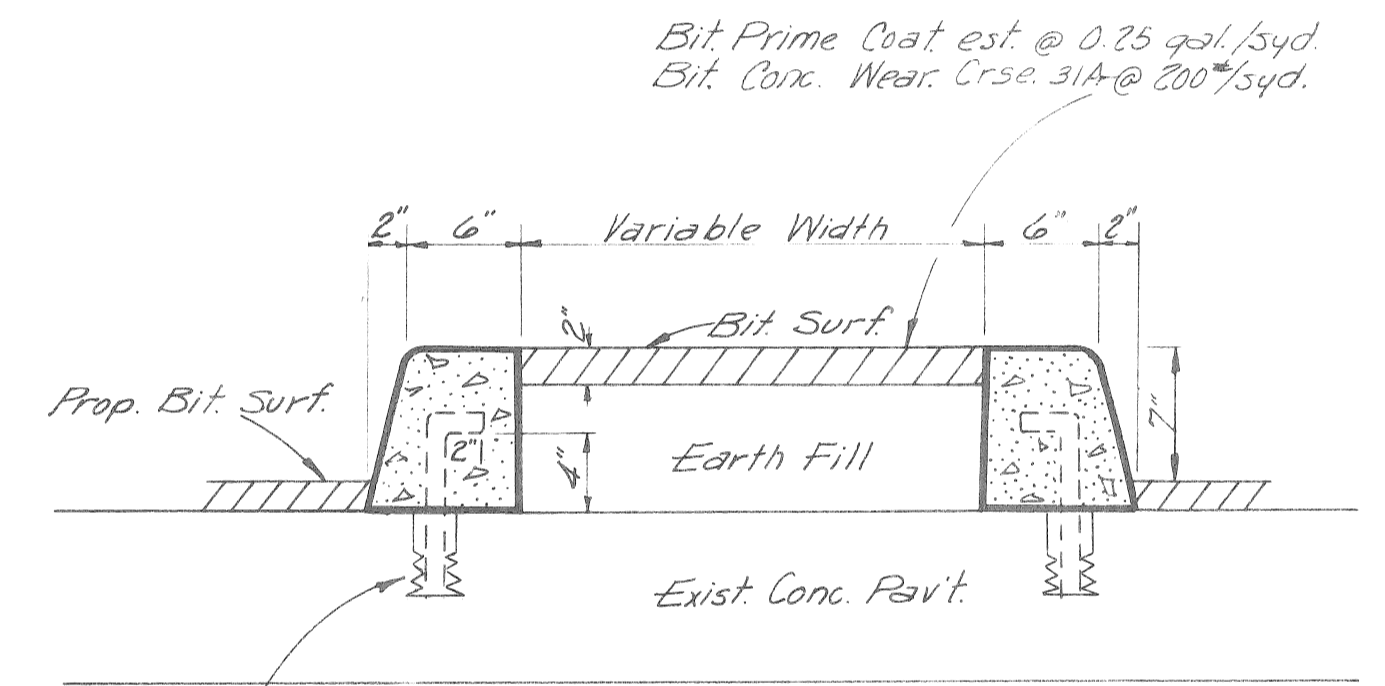 Bit. Prime Coat est. @ 0.25 gal./syd.
Bit. Conc. Wear. Crse. 31A @ 200#/syd.
2" 6" Variable Width 6" 2"
2" Bit. Surf.
Prop. Bit. Surf.
7"
2" 4" Earth Fill
Exist. Conc. Pav't.